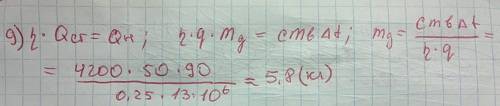 9) η · Qсг = Qн ; η · q · mg = cmвΔt ; mg = cmвΔt / η · q =
= 4200 · 50 · 90 / 0,25 · 13 · 10⁶ = 5,8 (кг)